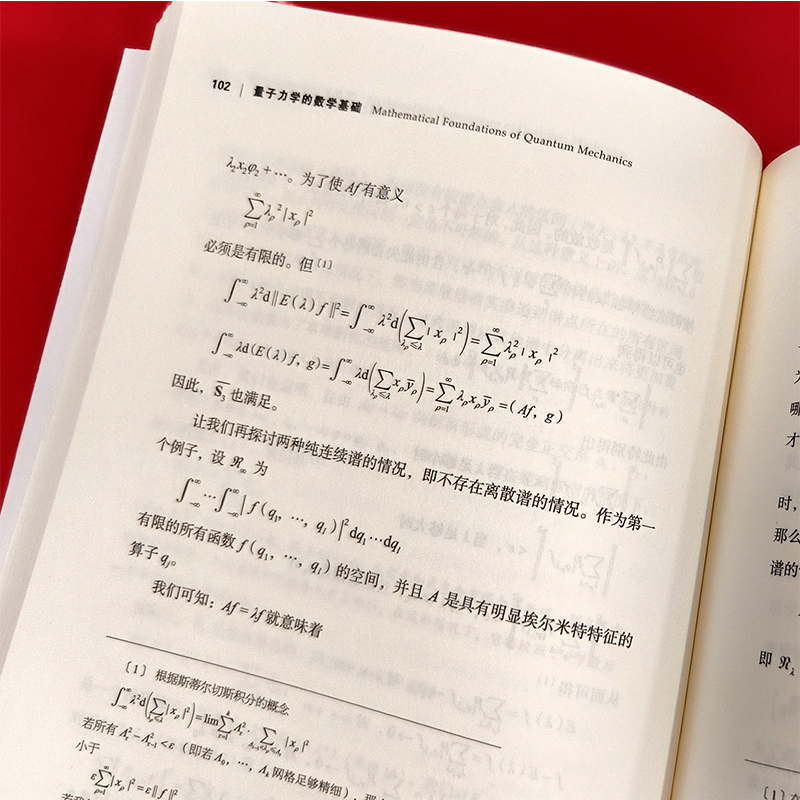 102 | 量子力学的数学基础 Mathematical Foundations of Quantum Mechanics
λ₂x₂φ₂ + ⋯。为了使 Af 有意义
∑_{ρ=1}^{∞} λ_ρ² |x_ρ|²
必须是有限的。但[1]
∫_{-∞}^{∞} λ²d‖E(λ)f‖² = ∫_{-∞}^{∞} λ²d(∑_{λ_ρ≤λ} |x_ρ|²) = ∑_{ρ=1}^{∞} λ_ρ² |x_ρ|²
∫_{-∞}^{∞} λd(E(λ)f, g) = ∫_{-∞}^{∞} λd(∑_{λ_ρ≤λ} x_ρ ȳ_ρ) = ∑_{ρ=1}^{∞} λ_ρ x_ρ ȳ_ρ = (Af, g)
因此，S̄₃ 也满足。
让我们再探讨两种纯连续谱的情况，即不存在离散谱的情况。作为第一
个例子，设 ℜ_∞ 为
∫_{-∞}^{∞} ⋯ ∫_{-∞}^{∞} |f(q₁, ⋯, q_l)|² dq₁⋯dq_l
有限的所有函数 f(q₁, ⋯, q_l) 的空间，并且 A 是具有明显埃尔米特特征的
算子 q_j。
我们可知：Af = λf 就意味着
[1] 根据斯蒂尔切斯积分的概念
∫_{-∞}^{∞} λ²d(∑_{λ_ρ≤λ} |x_ρ|²) = lim ∑_{r=1}^{k} Λ_r² · ∑ |x_ρ|²
若所有 Λ_r² − Λ_{r−1}² < ε（即若 Λ₀, ⋯, Λ_k 网格足够精细），那
小于
ε∑_{ρ=1}^{∞} |x_ρ|² = ε‖f‖²
哪
才
时，
那么
谱的
即 ℜ_λ
[1]